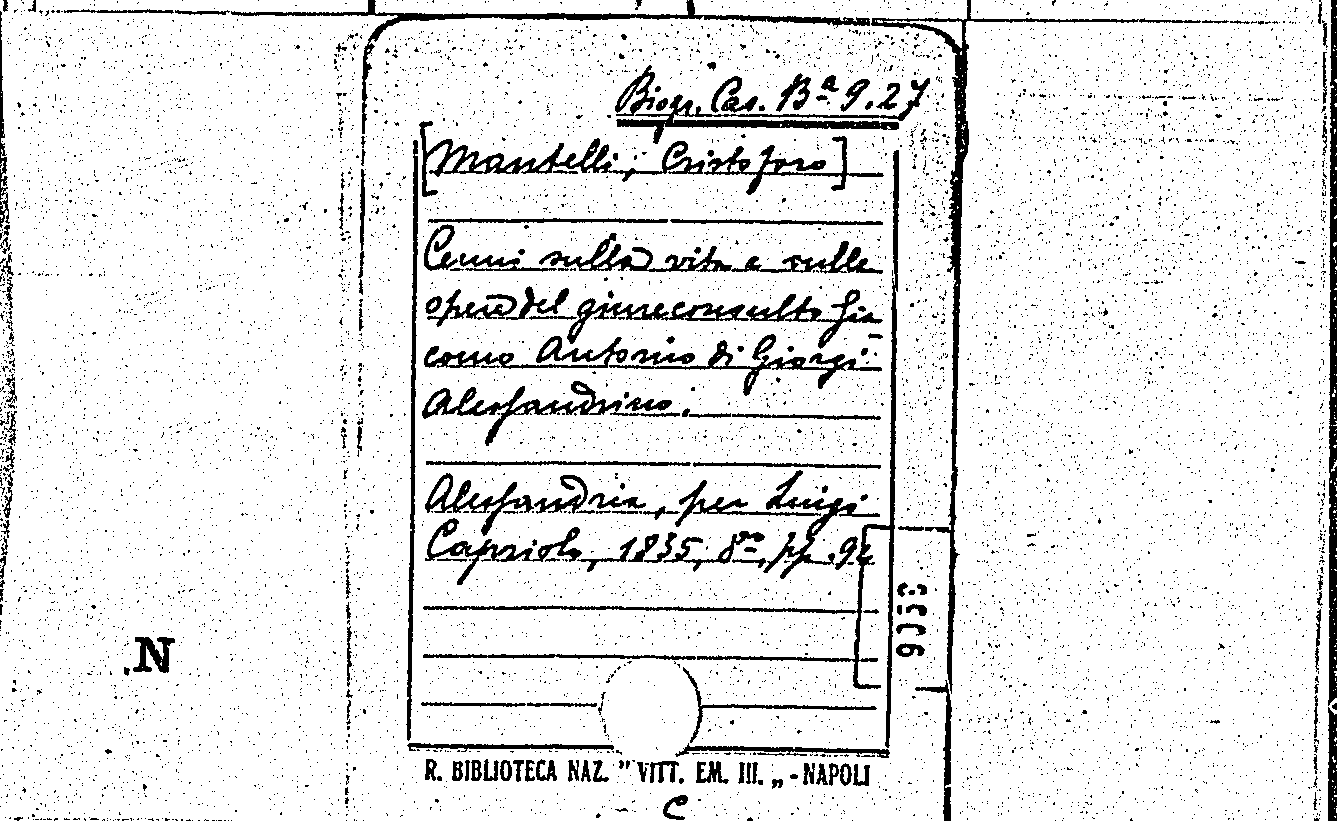 Biogr. Cas. Bª 9.27
[Mantelli, Cristoforo]
Cenni sulla vita e sulle
opere del giureconsulto Gia-
como Antonio di Giorgi
Alessandrino.
Alessandria, per Luigi
Capriolo, 1835, 8º, pp. 92
N
R. BIBLIOTECA NAZ. " VITT. EM. III. „ - NAPOLI
C